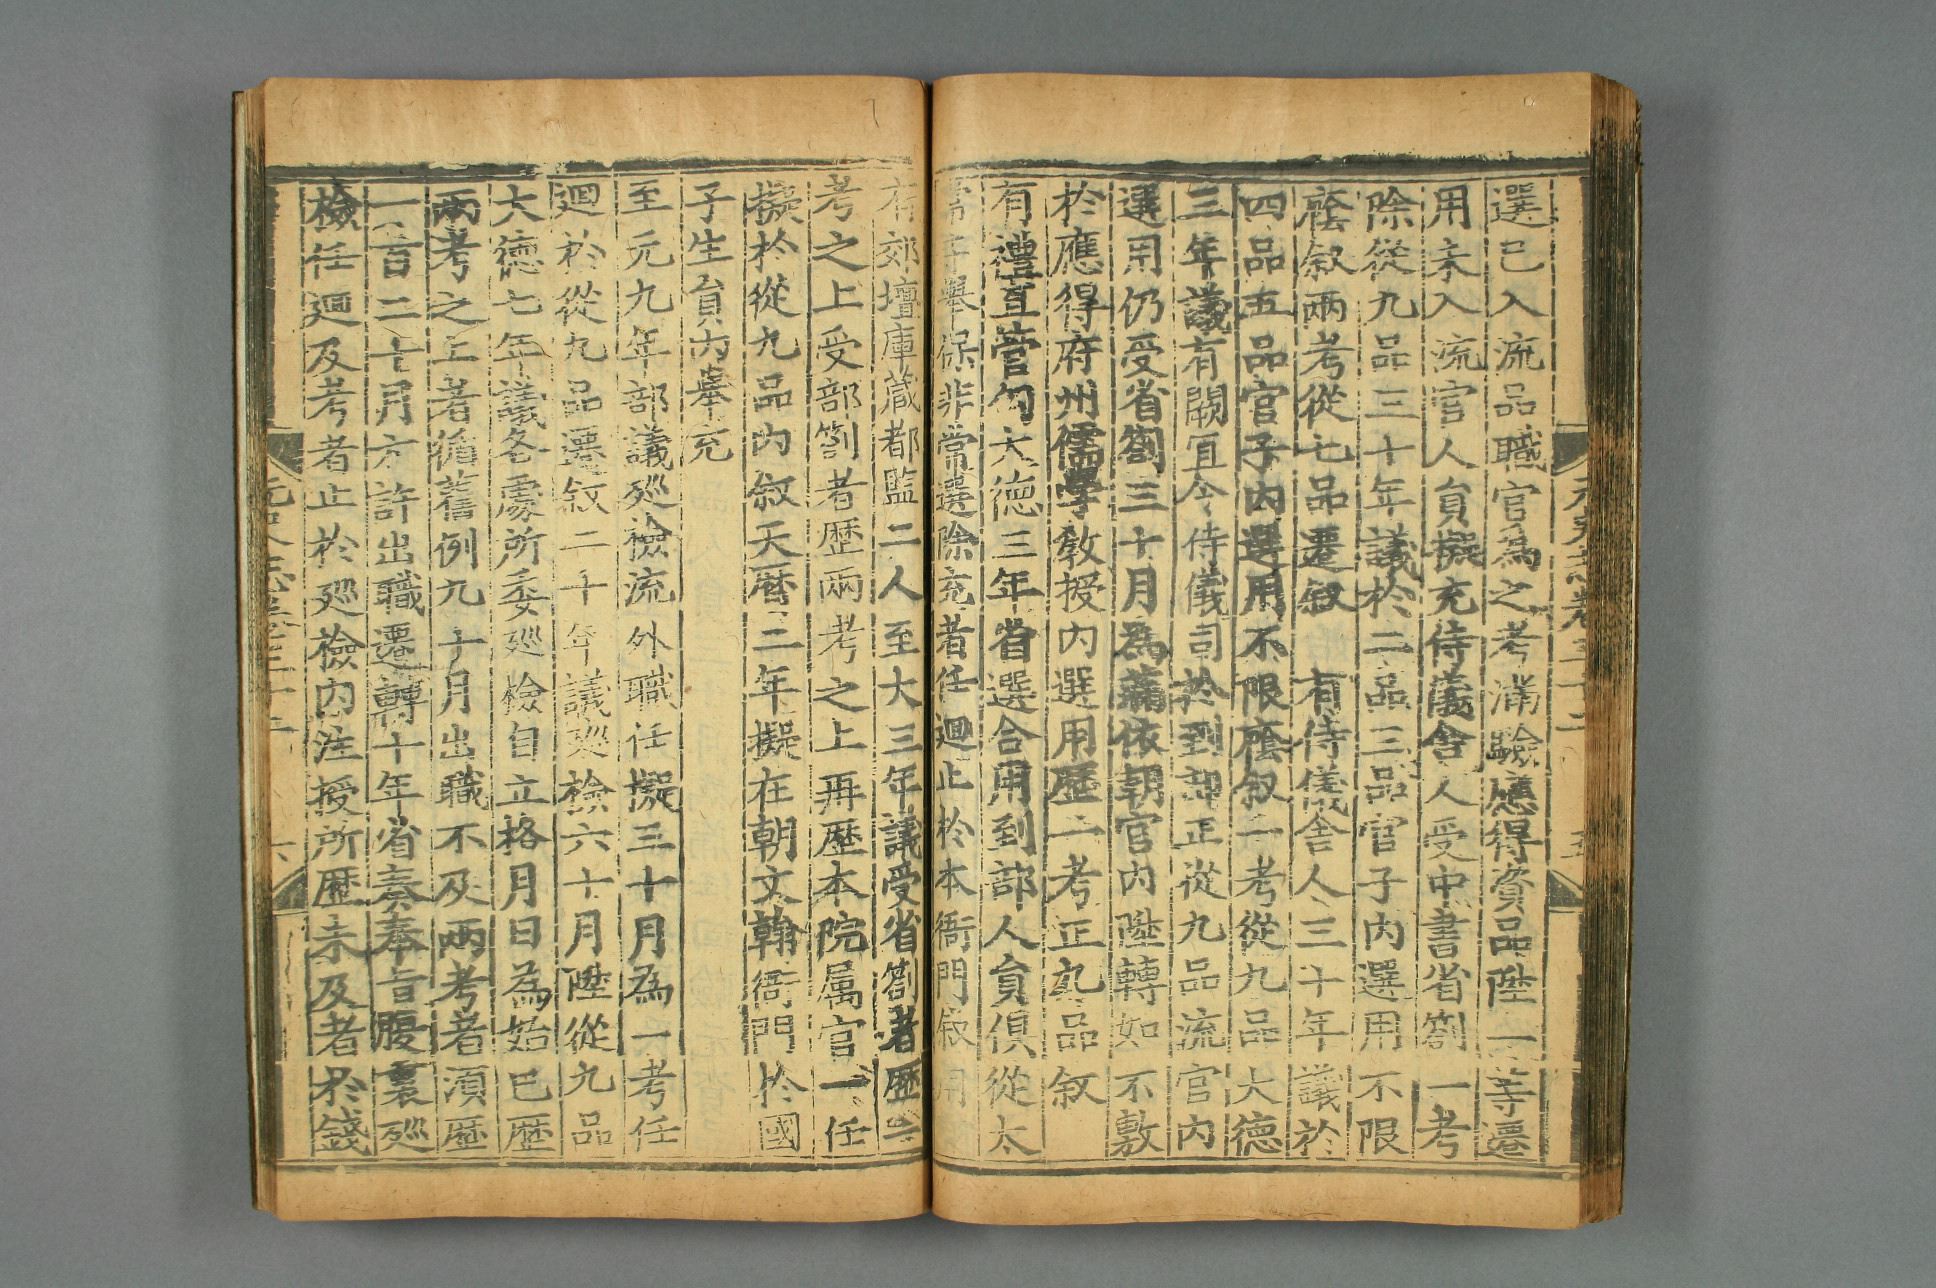 選已入流品職官爲之考滿驗應得資品陞一等遷
用未入流官人貟擬充侍儀舍人受中書省劄一考
除從九品三十年議於二品三品官子內選用不限
廕叙兩考從七品遷叙　有侍儀舍人三十年議於
四品五品官子內選用不限廕叙一考從九品大德
三年議有闕宜令侍儀司於到部正從九品流官內
選用仍受省劄三十月爲滿依朝官內陞轉如不敷
於應得府州儒學敎授內選用歷一考正九品叙
有禮直管勾大德三年省選合用到部人貟俱從太
常寺舉保非常選除充者任迴止於本衙門叙用
有郊壇庫藏都監二人至大三年議受省劄者歷一
考之上受部劄者歷兩考之上再歷本院屬官一任
擬於從九品內叙天曆二年擬在朝文翰衙門於國
子生貟內舉充
至元九年部議廵檢流外職任擬三十月爲一考任
迴於從九品遷叙二十年議廵檢六十月陞從九品
大德七年議各處所委廵檢自立格月日爲始已歷
兩考之上者循舊例九十月出職不及兩考者須歷
一百二十月方許出職遷轉十年省奏奉旨腹裏廵
檢任迴及考者止於廵檢內注授所歷未及者於錢
元史志卷三十二
六